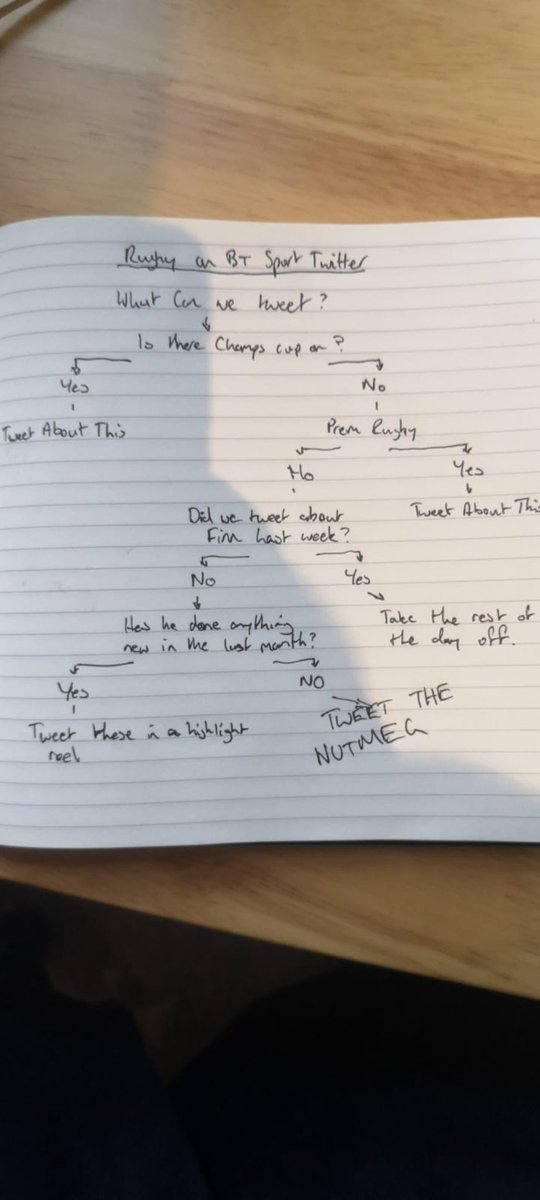 Rugby on BT Sport Twitter
What Can we tweet?
Is there Champs cup on?
Yes
No
Tweet About This
Prem Rugby
No
Yes
Did we tweet about
Finn Last week?
Tweet About This
No
Yes
Has he done anything
new in the last month?
Take the rest of
the day off.
Yes
NO
Tweet these in a highlight
reel
TWEET THE
NUTMEG